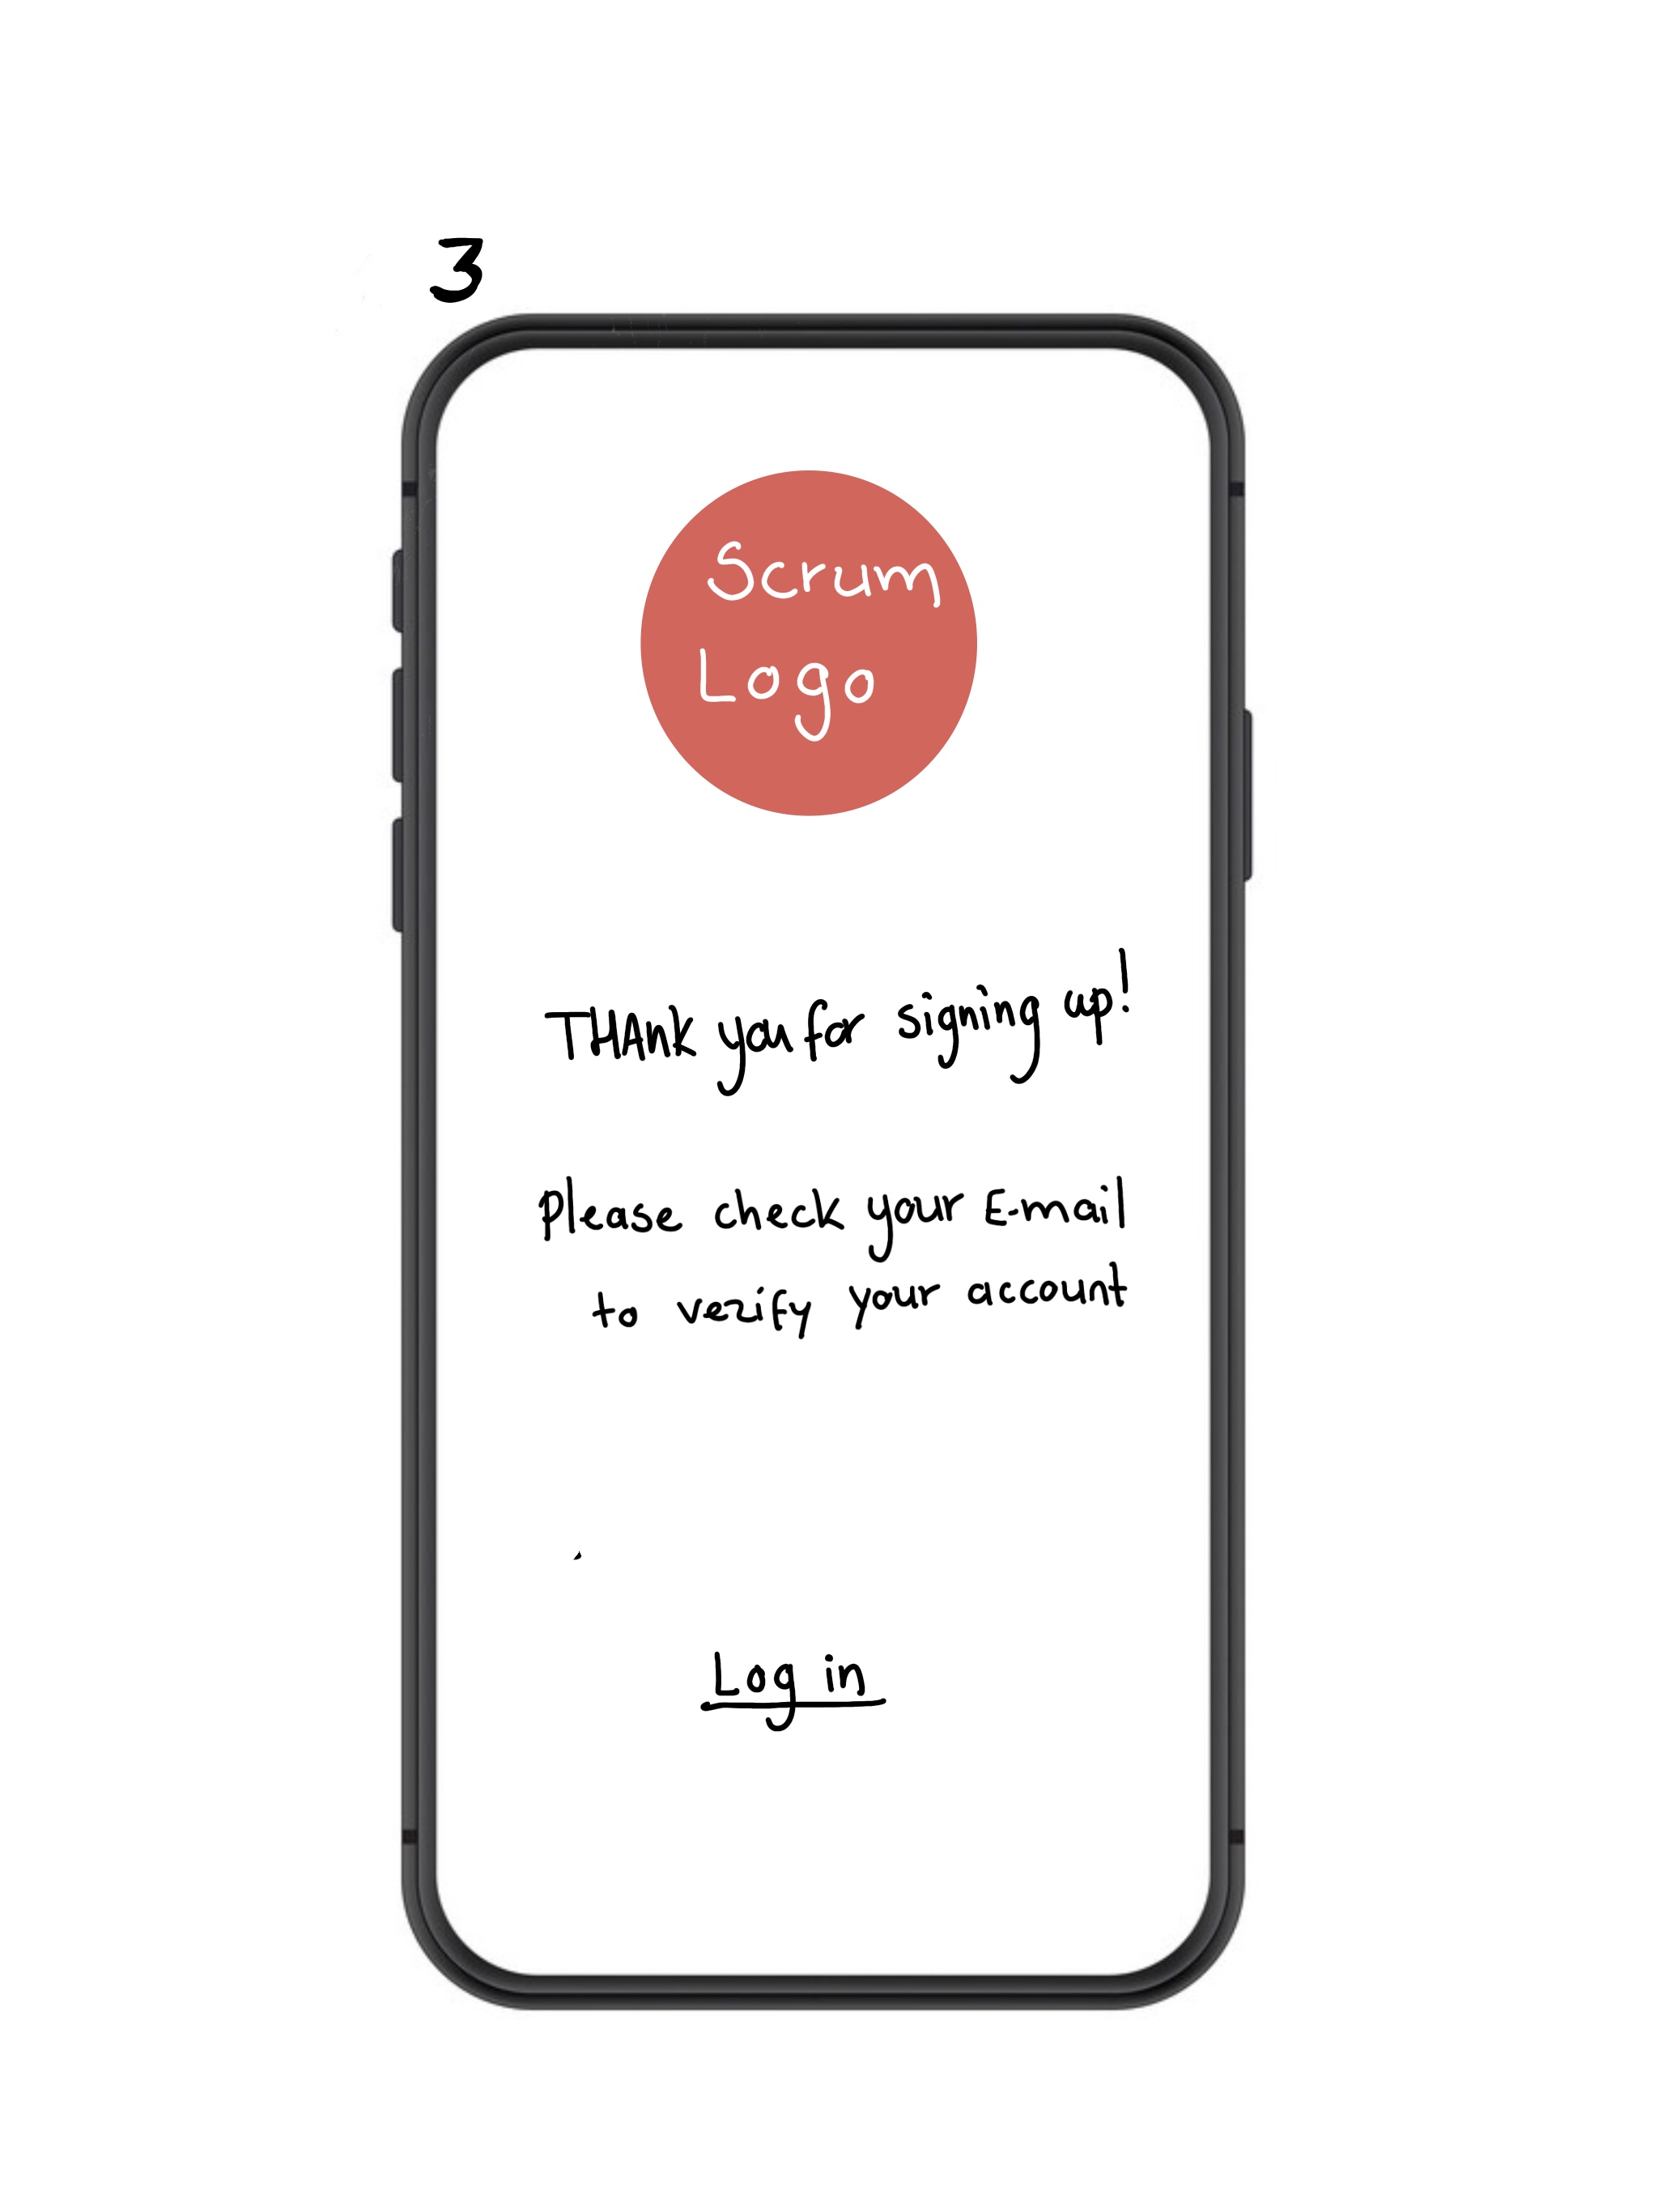 3
Scrum
Logo
THAnk you for signing up!
Please check your E-mail
to verify your account
Log in